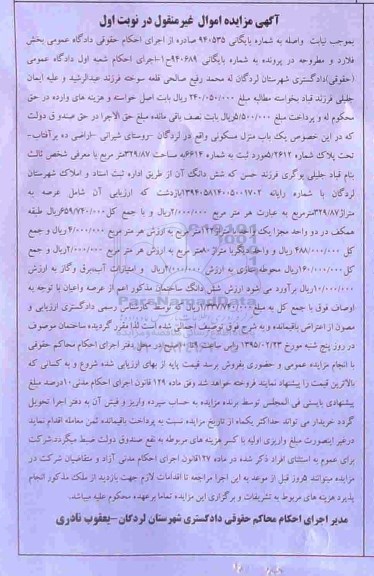 آگهی مزایده اموال غیرمنقول در نوبت اول
بموجب نیابت واصله به شماره بایگانی ۹۴۰۵۳۵ صادره از اجرای احکام حقوقی دادگاه عمومی بخش
فلارد و مطروحه در پرونده به شماره بایگانی ۹۴۰۶۸۹ج۱-اجرای احکام شعبه اول دادگاه عمومی
(حقوقی)دادگستری شهرستان لردگان له محمد رفیع صالحی قلعه سوخته فرزند عبدالرشید و علیه ایمان
جلیلی فرزند قباد بخواسته مطالبه مبلغ ۲۴۰/۰۵۰/۰۰۰ ریال بابت اصل خواسته و هزینه های وارده در حق
محکوم له و پرداخت مبلغ ۵/۵۰۰/۰۰۰ریال بابت نصف باقی مانده مبلغ حق الاجرا در حق صندوق دولت
که در این خصوص یک باب منزل مسکونی واقع در لردگان -روستای شیرانی -اراضی ده برآفتاب-
تحت پلاک شماره ۵/۲۶۱۲مورد ثبت به شماره ۶۶۱۴به مساحت ۳۲۹/۸۷مترمربع با معرفی شخص ثالث
بنام قباد جلیلی بوگری فرزند حسن که شش دانگ آن از طریق اداره ثبت اسناد و املاک شهرستان
لردگان با شماره رایانه ۱۳۹۴۰۵۸۱۴۰۰۵۰۰۱۷۰۲بازداشت که ارزیابی آن شامل عرصه به
متراژ۳۲۹/۸۷مترمربع به عبارت هر متر مربع ۲/۰۰۰/۰۰۰ریال و با جمع کل۶۵۹/۷۴۰/۰۰۰ریال طبقه
همکف در دو واحد مجزا یک باب به متراژ۱۲۲مترمربع به ارزش هر متر مربع ۴/۰۰۰/۰۰۰ریال و جمع
کل ۴۸۸/۰۰۰/۰۰۰ ریال و واحد دیگر با متراژ ۸۰متر مربع به ارزش هر متر مربع ۲/۰۰۰/۰۰۰ریال و جمع
کل ۱۶۰/۰۰۰/۰۰۰ریال محوطه سازی به ارزش ریال و امتیازات آب،برق وگاز به ارزش
ریال برآورد می شود ارزش شش دانگ ساختمان مذکور اعم از عرصه واعیان با توجه به
اوصاف فوق با جمع کل به مبلغ ۱/۳۳۷/۷۴۰/۰۰۰ریال که توسط کارشناس رسمی دادگستری ارزیابی و
مصون از اعتراض باقیمانده و به شرح فوق توصیف اجمالی شده است لذا مقرر گردیده ساختمان موصوف
در روز پنج شنبه مورخ ۱۳۹۵/۰۲/۲۳ راس ساعت ۹تا ۱۰صبح در محل دفتر اجرای احکام محاکم حقوقی
با انجام مزایده عمومی و حضوری بفروش برسد قیمت پایه از بهای ارزیابی شده شروع و به کسانی که
بالاترین قیمت را پیشنهاد نمایند فروخته خواهد شد وفق ماده ۱۲۹ قانون اجرای احکام مدنی ۱۰درصد مبلغ
پیشنهادی بایستی فی المجلس توسط برنده مزایده به حساب سپرده واریز و فیش آن به دفتر اجرا تحویل
گردد خریدار می تواند حداکثر یکماه از تاریخ مزایده نسبت به پرداخت باقیمانده ثمن معامله اقدام نماید
درغیر اینصورت مبلغ واریزی اولیه با کسر هزینه های مربوطه به نفع صندوق دولت ضبط میگردد.شرکت
برای عموم به استثنای افراد ذکر شده در ماده ۱۲۷قانون اجرای احکام مدنی آزاد و متقاضیان شرکت در
مزایده میتوانند ۵روز قبل از موعد به این اجرا مراجعه تا اقدامات لازم جهت بازدید از ملک مذکور انجام
پذیرد هزینه های مربوط به تشریفات و برگزاری این مزایده تماما برعهده محکوم علیه میباشد.
مدیر اجرای احکام محاکم حقوقی دادگستری شهرستان لردگان -یعقوب نادری